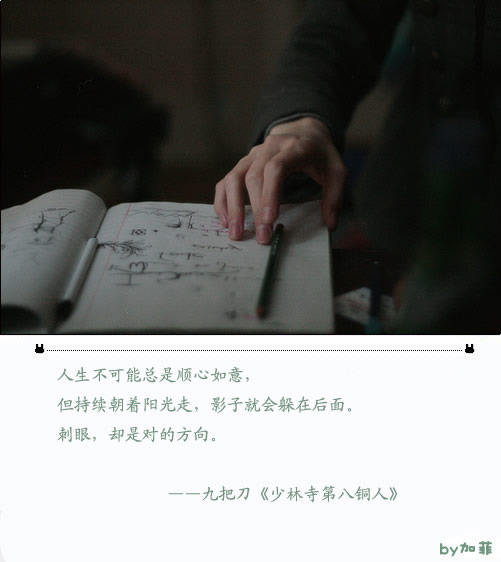 人生不可能总是顺心如意，
但持续朝着阳光走，影子就会躲在后面。
刺眼，却是对的方向。
——九把刀《少林寺第八铜人》
by加菲